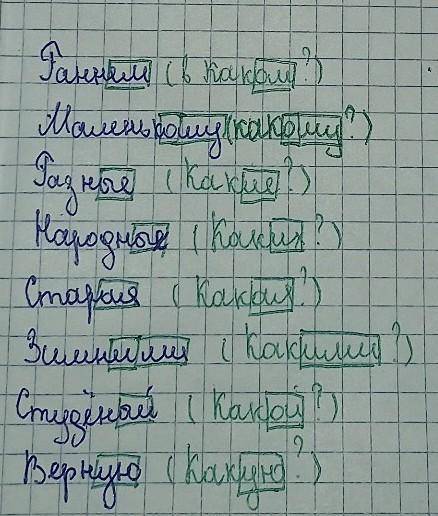 Ранним (в каком?)
Маленькому (какому?)
Разные (Какие?)
Народных (Каких?)
Старая (Какая?)
Зимними (Какими?)
Студёный (Какой?)
Верную (Какую?)